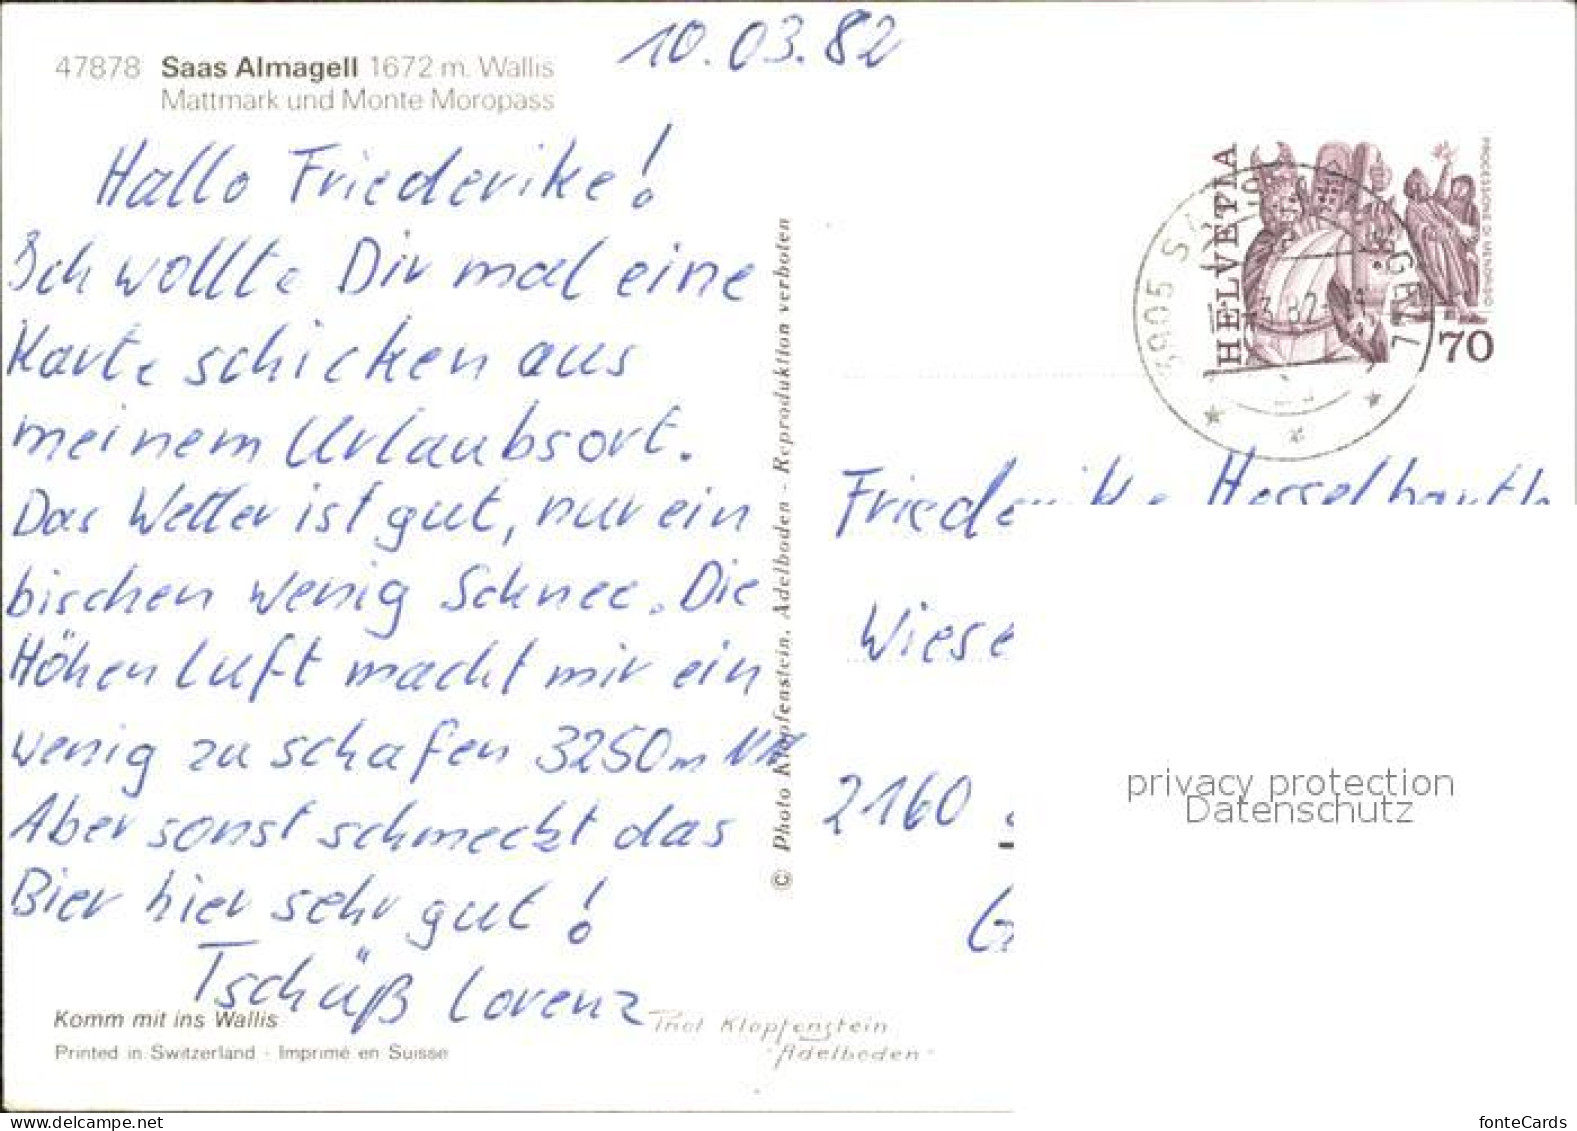 10.03.82
47878 Saas Almagell 1672 m. Wallis
Mattmark und Monte Moropass
Hallo Friederike!
Ich wollte Dir mal eine
Karte schicken aus
meinem Urlaubsort.
Das Wetter ist gut, nur ein
bischen wenig Schnee. Die
Höhenluft macht mir ein
wenig zu schafen 3250m NN
Aber sonst schmeckt das
Bier hier sehr gut!
Tschüß Lorenz
Komm mit ins Wallis
Printed in Switzerland - Imprimé en Suisse
Phot Klopfenstein
"Adelboden"
© Photo Klopfenstein, Adelboden - Reproduktion verboten
HELVETIA
PROCESSIONE DI MENDRISIO
70
3905 SA
3.82
Friederike
Wiese
2160
privacy protection
Datenschutz
www.delcampe.net
fonteCards